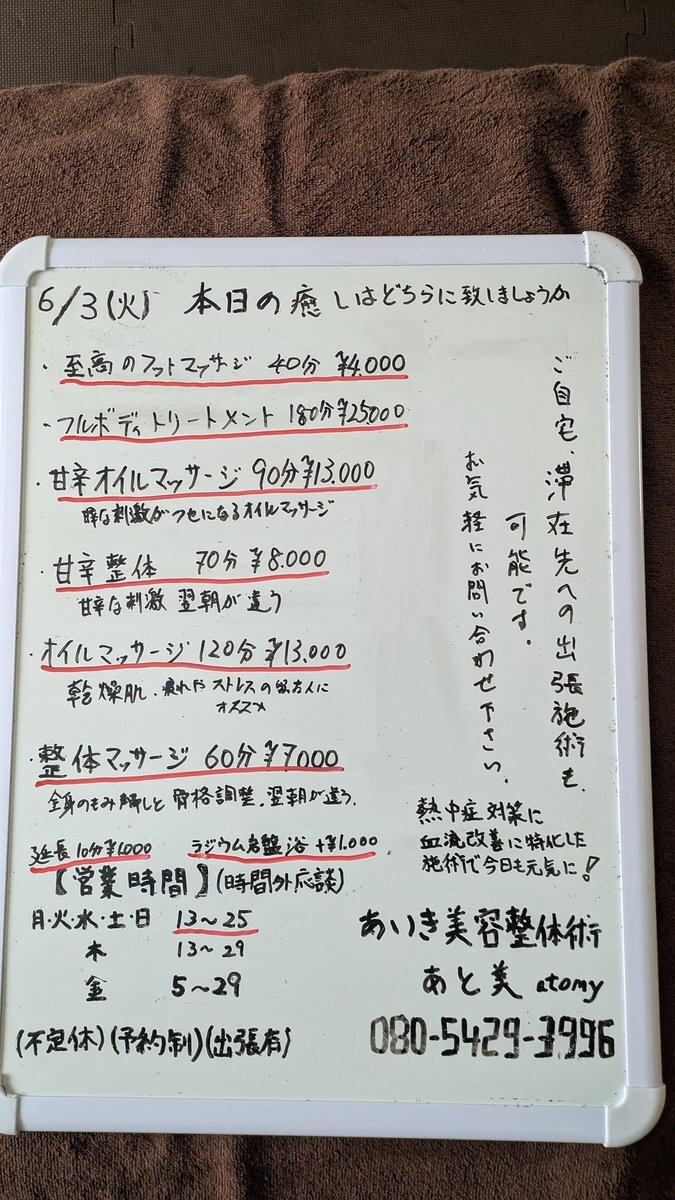 6/3(火) 本日の癒しはどちらに致しましょうか
・至高のフットマッサージ 40分 ¥4,000
・フルボディトリートメント 180分¥25,000
・甘辛オイルマッサージ 90分¥13,000
な刺激がつせになるオイルマッサージ
・甘辛整体 70分¥8,000
甘辛な刺激 翌朝が違う
・オイルマッサージ 120分¥13,000
乾燥肌、疲れやストレスの方に
オススメ
・整体マッサージ 60分¥7000
全身のもみ解しと骨格調整。翌朝が違う。
延長10分¥1,000 ラジウム岩盤浴+¥1,000
【営業時間】(時間外応談)
月・火・水・土・日 13〜25
木 13〜29
金 5〜29
(不定休)(予約制)(出張有)
ご自宅、滞在先への出張施術も、
可能です。
お気軽にお問い合わせ下さい。
熱中症対策に
血流改善に特化した
施術で今日も元気に!
あいき美容整体術
あと美 atomy
080-5429-3996